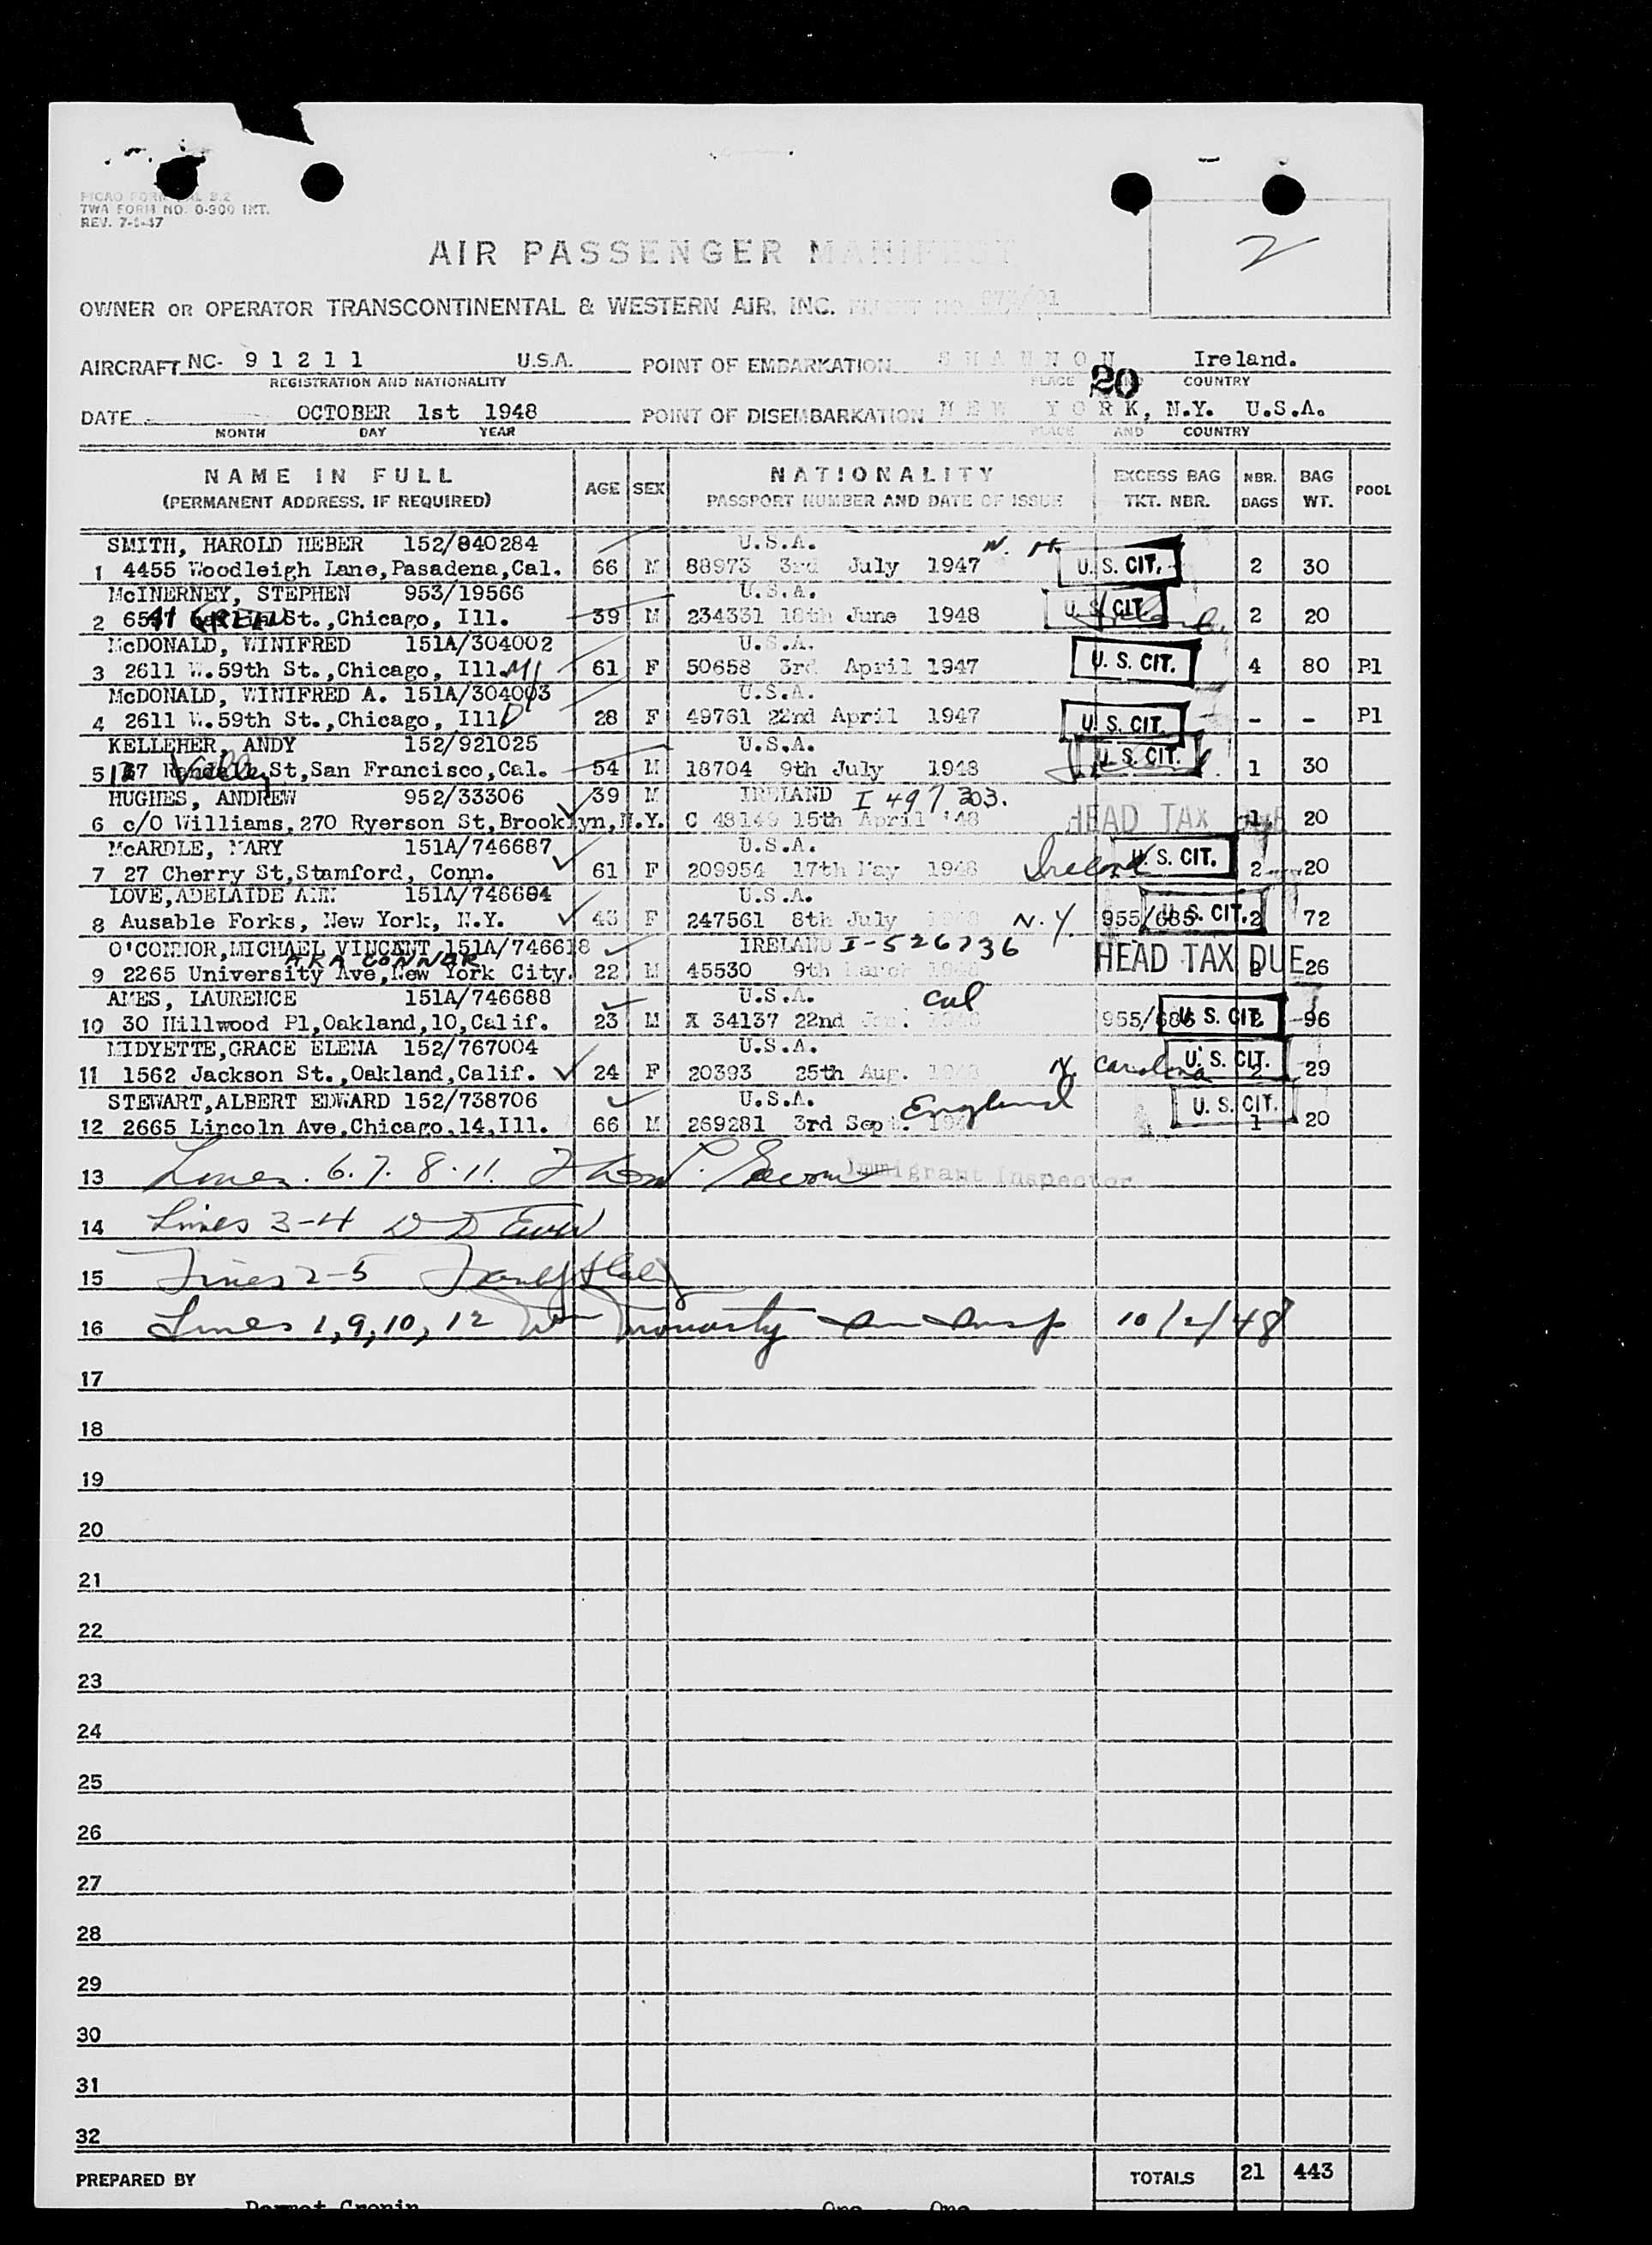 TWA FORM NO. 0-300 INT.
REV. 7-1-47
2
AIR PASSENGER MANIFEST
OWNER OR OPERATOR TRANSCONTINENTAL & WESTERN AIR, INC. FLIGHT NO.
AIRCRAFT NC- 9 1 2 1 1 U.S.A. POINT OF EMBARKATION S H A N N O N Ireland.
REGISTRATION AND NATIONALITY PLACE AND COUNTRY
20
DATE OCTOBER 1st 1948 POINT OF DISEMBARKATION N E W Y O R K, N.Y. U.S.A.
MONTH DAY YEAR PLACE AND COUNTRY
NAME IN FULL (PERMANENT ADDRESS, IF REQUIRED) AGE SEX NATIONALITY PASSPORT NUMBER AND DATE OF ISSUE EXCESS BAG TKT. NBR. NBR. BAGS BAG WT. POOL
SMITH, HAROLD HEBER 152/840284 U.S.A. N. H.
1 4455 Woodleigh Lane,Pasadena,Cal. 66 M 88973 3rd July 1947 U. S. CIT. 2 30
McINERNEY, STEPHEN 953/19566 U.S.A.
2 St.,Chicago, Ill. 39 M 234331 18th June 1948 U. S. CIT. Ireland 2 20
McDONALD, WINIFRED 151A/304002 U.S.A.
3 2611 W.59th St.,Chicago, Ill. 61 F 50658 3rd April 1947 U. S. CIT. 4 80 P1
McDONALD, WINIFRED A. 151A/304003 U.S.A.
4 2611 W.59th St.,Chicago, Ill 28 F 49761 22nd April 1947 U. S. CIT. - - P1
KELLEHER, ANDY 152/921025 U.S.A.
5 Valley St,San Francisco,Cal. 54 M 18704 9th July 1948 U. S. CIT. 1 30
HUGHES, ANDREW 952/33306 39 M IRELAND I 497,303.
6 c/O Williams,270 Ryerson St,Brooklyn,N.Y. C 48149 15th April '48 HEAD TAX 1 20
McARDLE, MARY 151A/746687 U.S.A.
7 27 Cherry St,Stamford, Conn. 61 F 209954 17th May 1948 Ireland U. S. CIT. 2 20
LOVE,ADELAIDE ANN 151A/746684 U.S.A.
8 Ausable Forks, New York, N.Y. 43 F 247561 8th July 1948 N.Y. 955/685 U. S. CIT. 2 72
O'CONNOR,MICHAEL VINCENT 151A/746618 IRELAND I-526736
AKA CONNOR
9 2265 University Ave,New York City. 22 M 45530 9th March 1948 HEAD TAX DUE 26
AMES, LAURENCE 151A/746688 U.S.A. Cal
10 30 Hillwood Pl,Oakland,10,Calif. 23 M X 34137 22nd Jan. 1948 955/686 U. S. CIT. 2 96
MIDYETTE,GRACE ELENA 152/767004 U.S.A.
11 1562 Jackson St.,Oakland,Calif. 24 F 20393 25th Aug. 1948 N. Carolina U. S. CIT. 2 29
STEWART,ALBERT EDWARD 152/738706 U.S.A. England
12 2665 Lincoln Ave,Chicago,14,Ill. 66 M 269281 3rd Sept. U. S. CIT. 1 20
13 Lines. 6. 7. 8. 11. Immigrant Inspector
14 Lines 3-4
15 Lines 2-5
16 Lines 1, 9, 10, 12 Wm Moriarty Im Insp 10/2/48
17
18
19
20
21
22
23
24
25
26
27
28
29
30
31
32
PREPARED BY TOTALS 21 443
Dermot Cronin One One